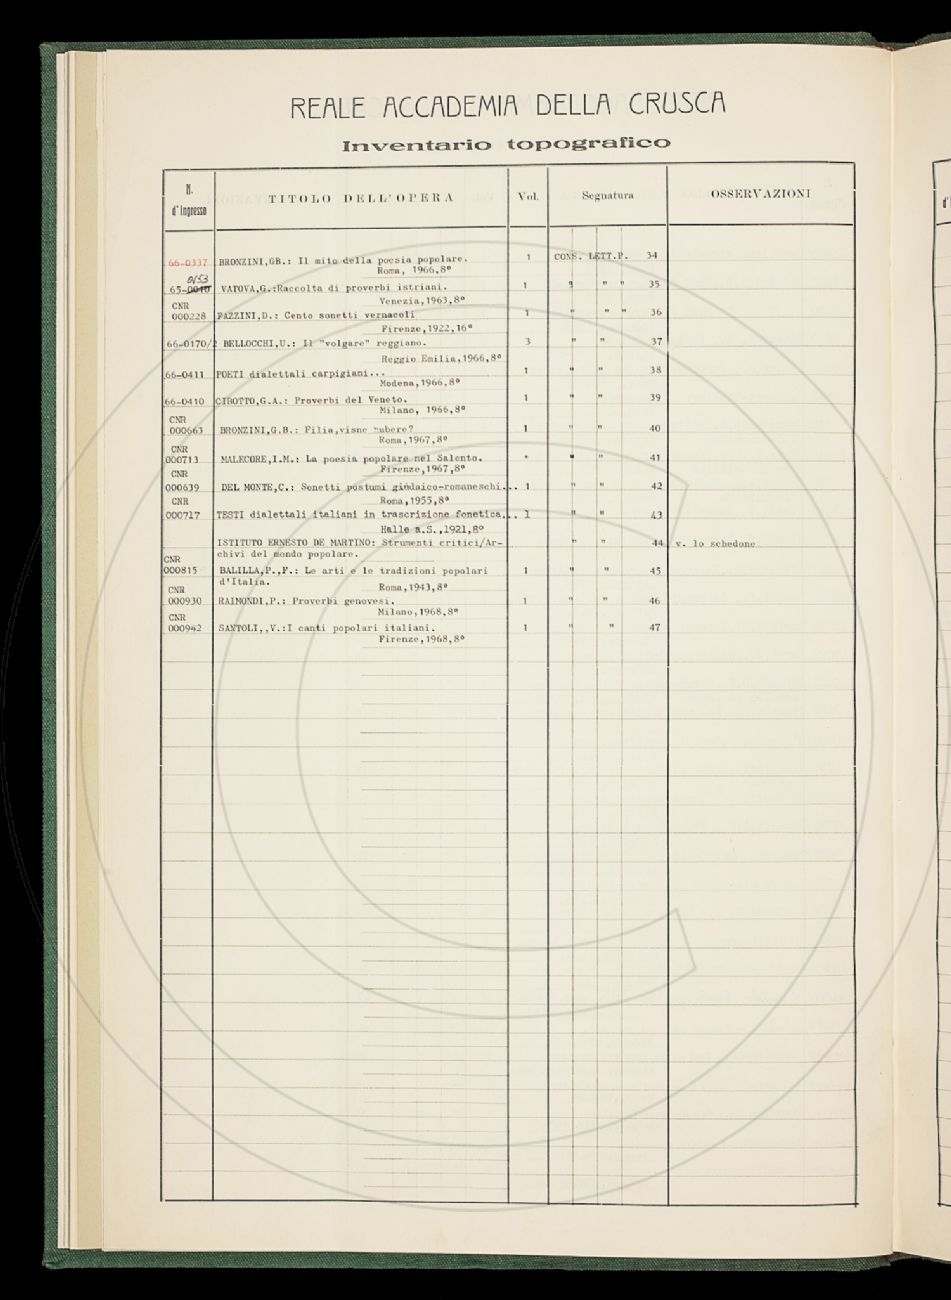 REALE ACCADEMIA DELLA CRUSCA
Inventario topografico
N. d'Ingresso TITOLO DELL'OPERA Vol. Segnatura OSSERVAZIONI
66-0337 BRONZINI,GB.: Il mito della poesia popolare. 1 CONS. LETT.P. 34
Roma, 1966,8º
0153
65-0010 VATOVA,G.:Raccolta di proverbi istriani. 1 " " " 35
CNR Venezia,1963,8º
000228 PAZZINI,D.: Cento sonetti vernacoli 1 " " " 36
Firenze,1922,16º
66-0170/2 BELLOCCHI,U.: Il "volgare" reggiano. 3 " " 37
Reggio Emilia,1966,8º
66-0411 POETI dialettali carpigiani... 1 " " 38
Modena,1966,8º
66-0410 CIBOTTO,G.A.: Proverbi del Veneto. 1 " " 39
Milano, 1966,8º
CNR
000663 BRONZINI,G.B.: Filia,visne nubere? 1 " " 40
Roma,1967,8º
CNR
000713 MALECORE,I.M.: La poesia popolare nel Salento. " " " 41
CNR Firenze,1967,8º
000639 DEL MONTE,C.: Sonetti postumi giudaico-romaneschi... 1 " " 42
CNR Roma,1955,8º
000717 TESTI dialettali italiani in trascrizione fonetica... 1 " " 43
Halle a.S.,1921,8º
ISTITUTO ERNESTO DE MARTINO: Strumenti critici/Ar- " " 44 v. lo schedone
chivi del mondo popolare.
CNR
000815 BALILLA,P.,F.: Le arti e le tradizioni popolari 1 " " 45
d'Italia.
CNR Roma,1943,8º
000930 RAIMONDI,P.: Proverbi genovesi. 1 " " 46
Milano,1968,8º
CNR
000942 SANTOLI,,V.:I canti popolari italiani. 1 " " 47
Firenze,1968,8º
d'